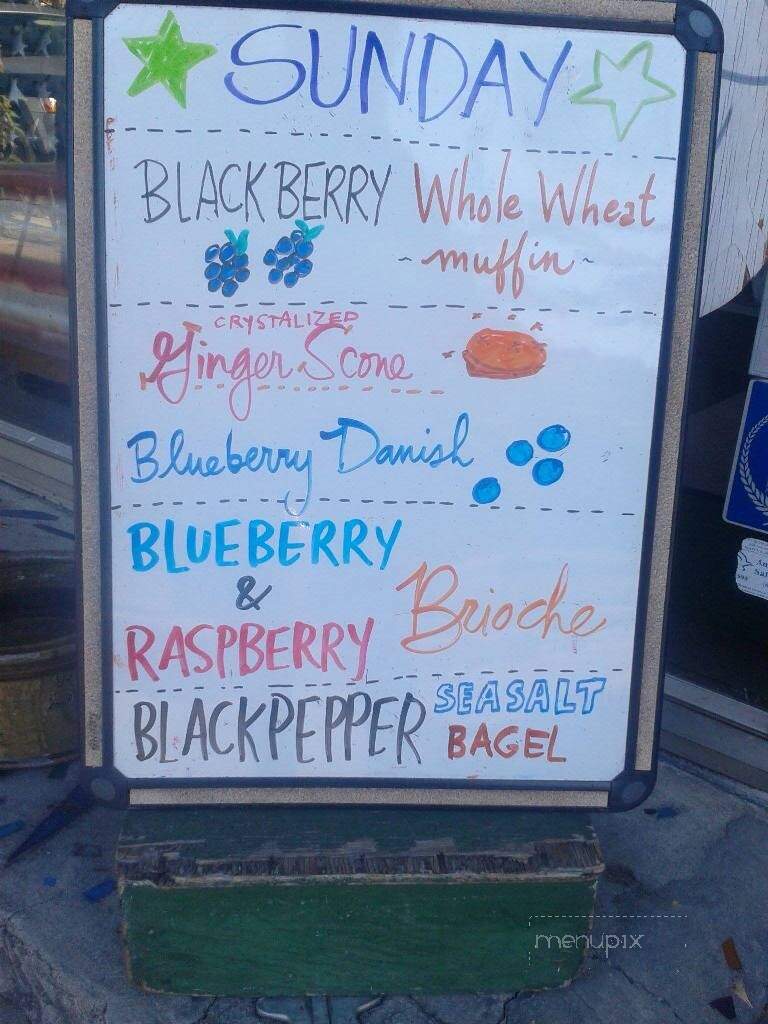 SUNDAY
BLACKBERRY Whole Wheat
~muffin~
CRYSTALIZED
Ginger Scone
Blueberry Danish
BLUEBERRY
&
RASPBERRY Brioche
BLACKPEPPER SEASALT
BAGEL
menupix